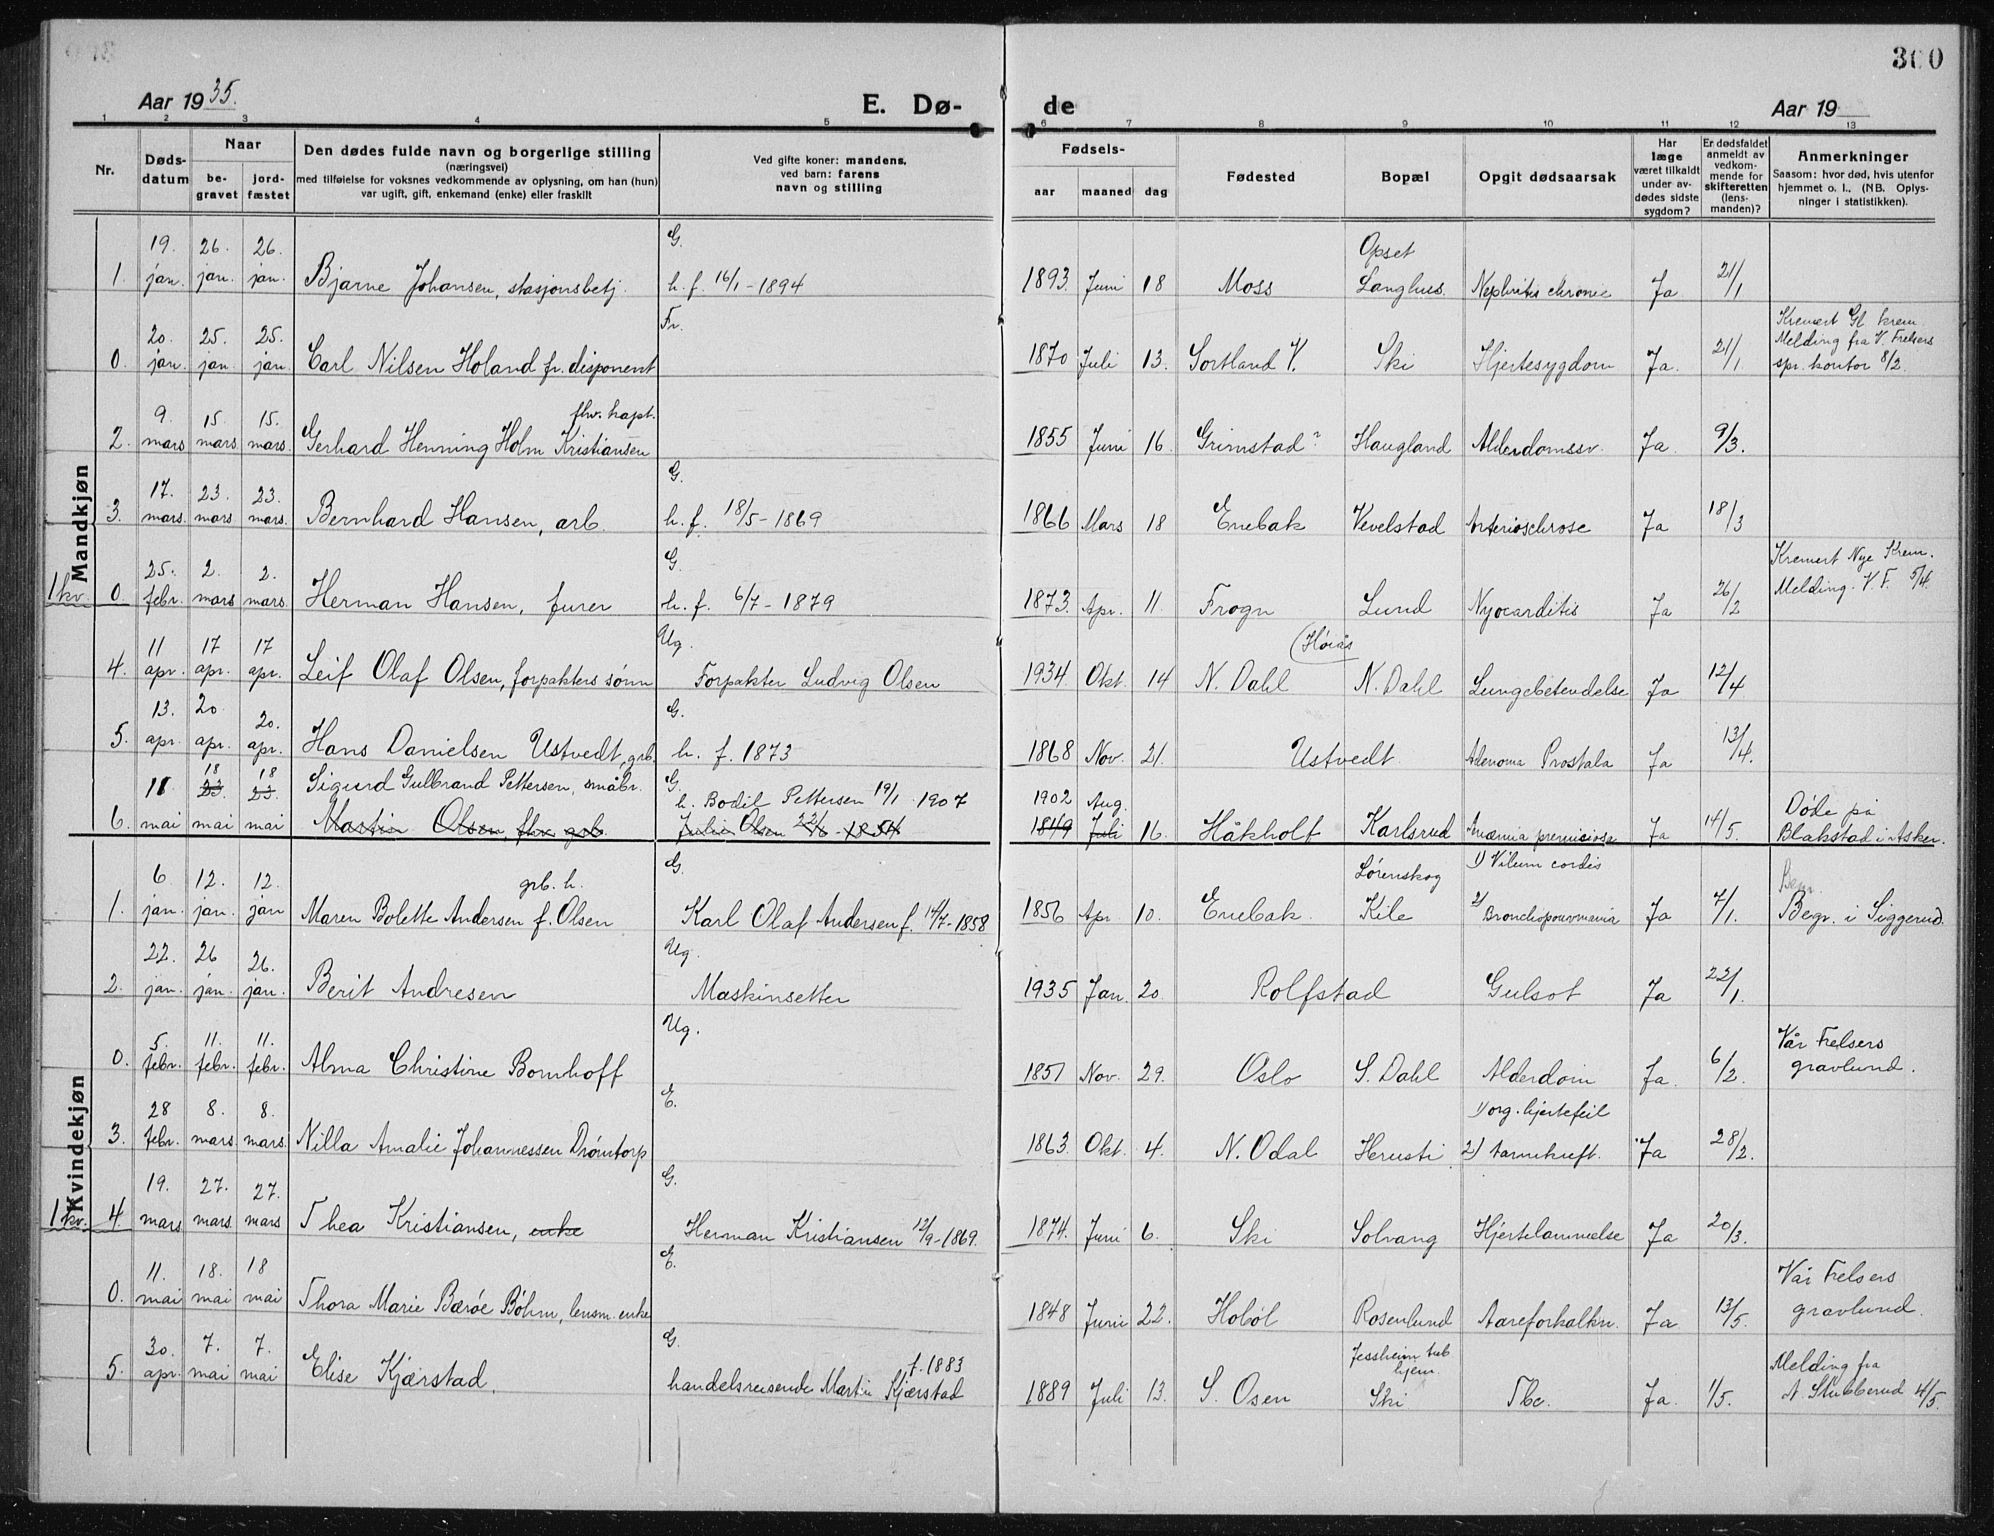 300
Aar 1935.
E. Dø-
de
Aar 19
1 2 3 4 5 6 7 8 9 10 11 12 13
Nr.
Døds-
datum
Naar
be-
gravet
jord-
fæstet
Den dødes fulde navn og borgerlige stilling
(næringsvei)
med tilføielse for voksnes vedkommende av oplysning, om han (hun)
var ugift, gift, enkemand (enke) eller fraskilt
Ved gifte koner: mandens,
ved barn: farens
navn og stilling
Fødsels-
aar maaned dag
Fødested
Bopæl
Opgit dødsaarsak
Har
læge
været tilkaldt
under av-
dødes sidste
sygdom?
Er dødsfaldet
anmeldt av
vedkom-
mende for
skifteretten
(lens-
manden)?
Anmerkninger
Saasom: hvor død, hvis utenfor
hjemmet o. l., (NB. Oplys-
ninger i statistikken).
Mandkjøn
19. 26. 26. G. Opset
1. jan. jan. jan. Bjarne Johansen, stasjonsbetj. h. f. 16/1 - 1894 1893 Juni 18 Moss Langhus. Nephritis chronic Ja 21/1
20. 25. 25. Fr. Kremert Gl. krem.
Melding fra V. Frelsers
0. jan. jan. jan. Carl Nilsen Holand fr. disponent 1870 Juli 13. Sortland V. Ski Hjertesygdom Ja. 21/1 spr. kontor 8/2.
9. 15. 15. fhv. kapt.
2. mars mars mars. Gerhard Henning Holm Kristiansen 1855 Juni 16. Grimstad? Haugland Alderdomssv. Ja. 9/3.
17. 23. 23. G.
3. mars. mars mars. Bernhard Hansen, arb. h. f. 18/5 - 1869 1866 Mars 18 Enebak Vevelstad Arterioschrose Ja 18/3
25. 2. 2. G. Kremert Nye Krem.
1 kv. 0. febr. mars mars. Herman Hansen, furer h. f. 6/7 - 1879 1873. Apr. 11. Frogn Lund Myocarditis Ja 26/2 Melding. V. F. 5/4.
11 17 17 Ug. (Høiås
4. apr. apr. apr. Leif Olaf Olsen, forpakters sønn Forpakter Ludvig Olsen 1934. Okt. 14 N. Dahl N. Dahl Lungebetendelse Ja 12/4
13. 20 20. G.
5. apr. apr. apr. Hans Danielsen Ustvedt, grb. h. f. 1873 1868 Nov. 21. Ustvedt Adenoma Prostata Ja 13/4.
11 18 18 Sigurd Gulbrand Pettersen, småbr. G. h. Bodil Pettersen 19/1 1907 1902 Aug. Døde på
23. 23.
6. mai mai mai Martin Olsen, fhv. grb. Julie Olsen 22/6 - 1854 1849 Juli 16. Håkholt Karlsrud Anæmia perniciosa Ja 14/5. Blakstad i Asker.
Kvindekjøn
6 12. 12. grb. h. G. Lørenskog 1) Vilium cordis Begr.
1. jan. jan. jan Maren Bolette Andersen f. Olsen Karl Olaf Andersen f. 14/7-1858 1856 Apr. 10. Enebak. Kile 2) Bronchopouvmania Ja 7/1. Begr. i Siggerud.
22. 26 26. Ug.
2. jan. jan. jan. Berit Andresen Maskinsetter 1935 Jan. 20. Rolfstad Gulsot Ja 22/1.
5. 11. 11. Ug. Vår Frelsers
0. febr. febr. febr. Alma Christine Bomhoff 1851 Nov. 29. Oslo S. Dahl Alderdom Ja. 6/2. gravlund.
28 8. 8. E. 1) org. hjertefeil
3. febr. mars mars. Nilla Amalie Johannessen Drømtorp 1863 Okt. 4. N. Odal Herusti 2) tarmkreft. Ja 28/2.
19. 27. 27. G.
1 kv. 4. mars mars. mars Thea Kristiansen, enke Herman Kristiansen 12/9-1869. 1874. Juni 6. Ski Solvang Hjertelammelse Ja 20/3.
11. 18. 18 E. Vår Frelsers
0. mai mai mai Thora Marie Bærøe Bøhm, lensm. enke 1848 Juni 22. Hobøl Rosenlund Aareforkalkn. Ja 13/5. gravlund.
30. 7. 7. G. f. 1883 Jessheim tub. hjem. Melding fra
5. apr. mai mai Elise Kjærstad, handelsreisende Martin Kjærstad 1889 Juli 13. S. Osen Ski Tbc. Ja. 1/5. A. Stubberud 4/5.